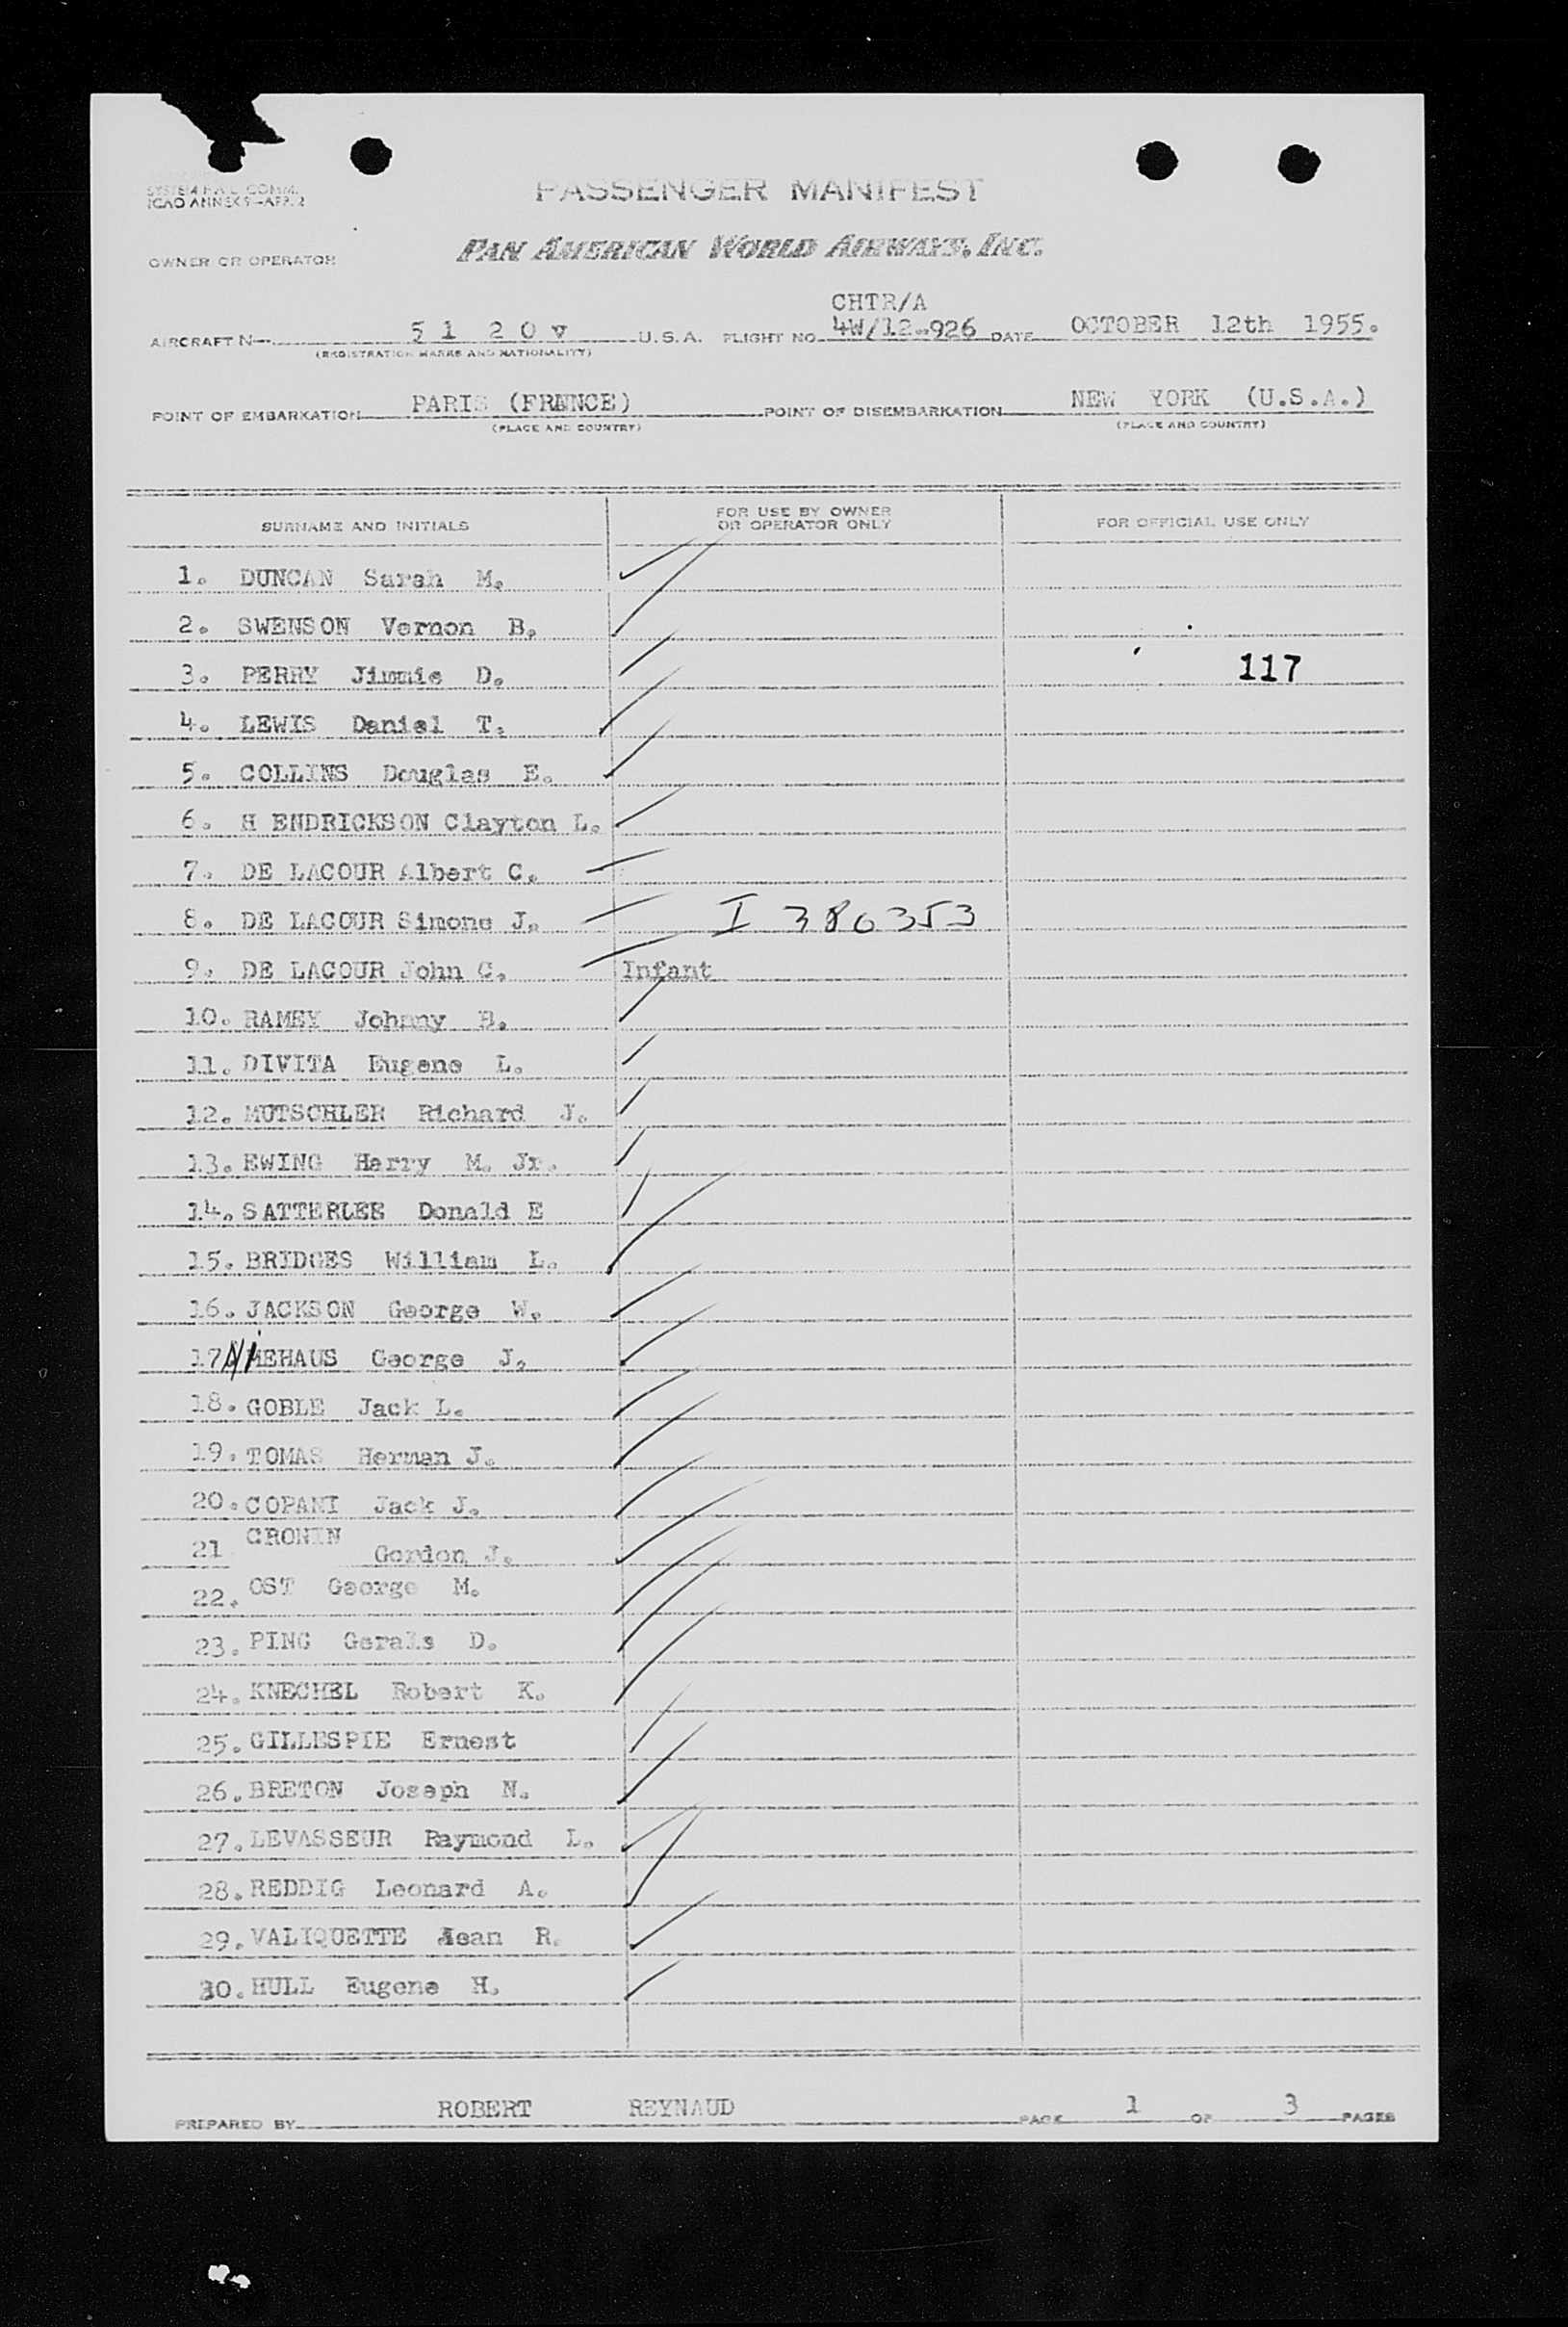 SYSTEM HAL COMM.
ICAO ANNEX 9—APP. 2
PASSENGER MANIFEST
OWNER OR OPERATOR PAN AMERICAN WORLD AIRWAYS, INC.
CHTR/A
AIRCRAFT N— 5 1 2 0 v U.S.A. FLIGHT NO. 4W/12-926 DATE OCTOBER 12th 1955.
(REGISTRATION MARKS AND NATIONALITY)
POINT OF EMBARKATION PARIS (FRANCE) POINT OF DISEMBARKATION NEW YORK (U.S.A.)
(PLACE AND COUNTRY) (PLACE AND COUNTRY)
SURNAME AND INITIALS FOR USE BY OWNER OR OPERATOR ONLY FOR OFFICIAL USE ONLY
1. DUNCAN Sarah M.
2. SWENSON Vernon B.
3. PERRY Jimmie D. 117
4. LEWIS Daniel T.
5. COLLINS Douglas E.
6. H ENDRICKSON Clayton L.
7. DE LACOUR Albert C.
8. DE LACOUR Simone J. I 380353
9. DE LACOUR John C. Infant
10. RAMEY Johnny B.
11. DIVITA Eugene L.
12. MUTSCHLER Richard J.
13. EWING Harry M. Jr.
14. SATTERLEE Donald E
15. BRIDGES William L.
16. JACKSON George W.
17. NIEHAUS George J.
18. GOBLE Jack L.
19. TOMAS Herman J.
20. COPANI Jack J.
21 CRONIN Gordon J.
22. OST George M.
23. PING Gerals D.
24. KNECHEL Robert K.
25. GILLESPIE Ernest
26. BRETON Joseph N.
27. LEVASSEUR Raymond L.
28. REDDIG Leonard A.
29. VALIQUETTE R.
30. HULL Eugene H.
PREPARED BY ROBERT REYNAUD PAGE 1 OF 3 PAGES